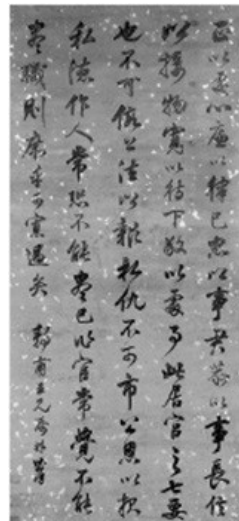 正以處心廉以律己忠以事君恭以事長信
以接物寬以待下敬以處事此居官之七要
也不可假公法以報私仇不可市公恩以報
私德作人常恐不能盡己服官常覺不能
盡職則庶乎可寡過矣 翰甫五兄